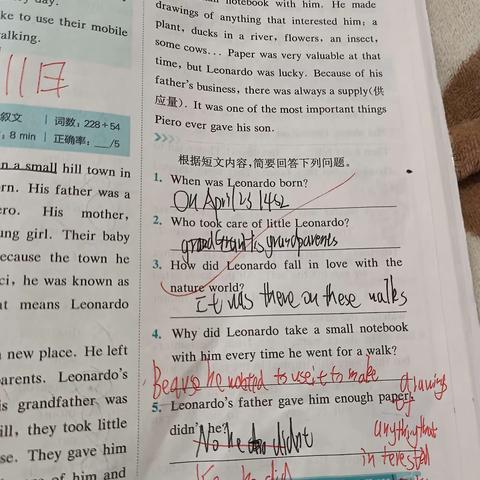 ke to use their mobile
alking.
11日
叙文 词数：228+54
：8 min 正确率：__/5
n a small hill town in
rn. His father was a
ero. His mother,
ung girl. Their baby
ecause the town he
ci, he was known as
at means Leonardo
new place. He left
arents. Leonardo's
is grandfather was
ill, they took little
se. They gave him
of him and
notebook with him. He made
drawings of anything that interested him; a
plant, ducks in a river, flowers, an insect,
some cows... Paper was very valuable at that
time, but Leonardo was lucky. Because of his
father's business, there was always a supply(供
应量). It was one of the most important things
Piero ever gave his son.
根据短文内容，简要回答下列问题。
1. When was Leonardo born?
On April 23 1452
2. Who took care of little Leonardo?
grandparents
3. How did Leonardo fall in love with the
nature world?
It was there on these walks
4. Why did Leonardo take a small notebook
with him every time he went for a walk?
Beause he wanted to use it to make
drawings
5. Leonardo's father gave him enough paper,
didn't he?
anything that
No he didnt
interested
he did